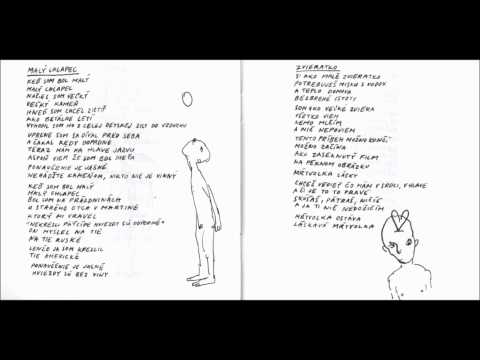 MALÝ CHLAPEC
KEĎ SOM BOL MALÝ
MALÝ CHLAPEC
NAŠIEL SOM VEĽKÝ
VEĽKÝ KAMEŇ
HNEĎ SOM CHCEL ZISTIŤ
AKO BETÁLNE LETÍ
VYHODIL SOM HO Z CELEJ DETSKEJ SILY DO VZDUCHU
UPRENE SOM SA DÍVAL PRED SEBA
A ČAKAL KEDY DOPADNE
TERAZ MÁM NA HLAVE JAZVU
ASPOŇ VIEM ŽE SOM BOL DIEŤA
PONAUČENIE JE JASNÉ
NEHÁDŽTE KAMEŇOM, NIKTO NIE JE VINNÝ
KEĎ SOM BOL MALÝ
MALÝ CHLAPEC
BOL SOM NA PRÁZDNINÁCH
U STARÉHO OTCA V MARTINE
KTORÝ MI VRAVEL
"NEKRESLI PÄŤCÍPE HVIEZDY SÚ ODPORNÉ"
ON MYSLEL NA TIE
NA TIE RUSKÉ
LENŽE JA SOM KRESLIL
TIE AMERICKÉ
PONAUČENIE JE JASNÉ
HVIEZDY SÚ BEZ VINY
ZVIERATKO
SI AKO MALÉ ZVIERATKO
POTREBUJEŠ MISKU S VODOU
A TEPLO DOMOVA
BEZBRANNÉ ISTOTY
SOM AKO VEĽKÉ ZVIERA
VŠETKO VIEM
LEBO MLČÍM
A NIČ NEPOVIEM
TENTO PRÍBEH MOŽNO KONČÍ,
MOŽNO ZAČÍNA
AKO ZASEKNUTÝ FILM
NA PEKNOM OBRÁZKU
MŔTVOLKA LÁSKY
CHCEŠ VEDIEŤ ČO MÁM V SRDCI, V HLAVE
A ČI JE TO TO PRAVÉ
SKÚŠAŠ, PÁTRAŠ, NIČÍŠ
A JA TI NIČ NEDOSIEHAM
MŔTVOLKA OSTÁVA
LÁSKAVÁ MŔTVOLKA